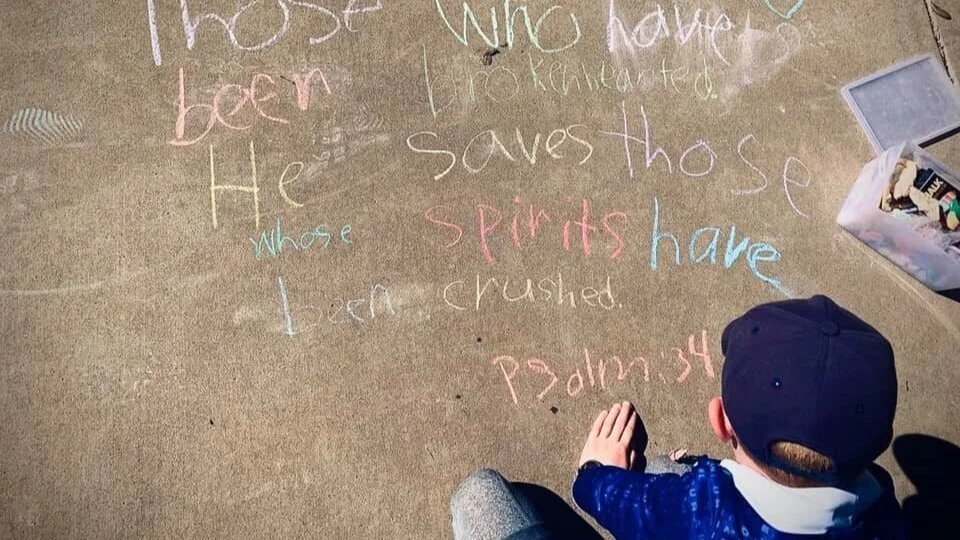 Those who have
been brokenhearted.
He saves those
whose spirits have
been crushed.
Psalm:34
CHALK